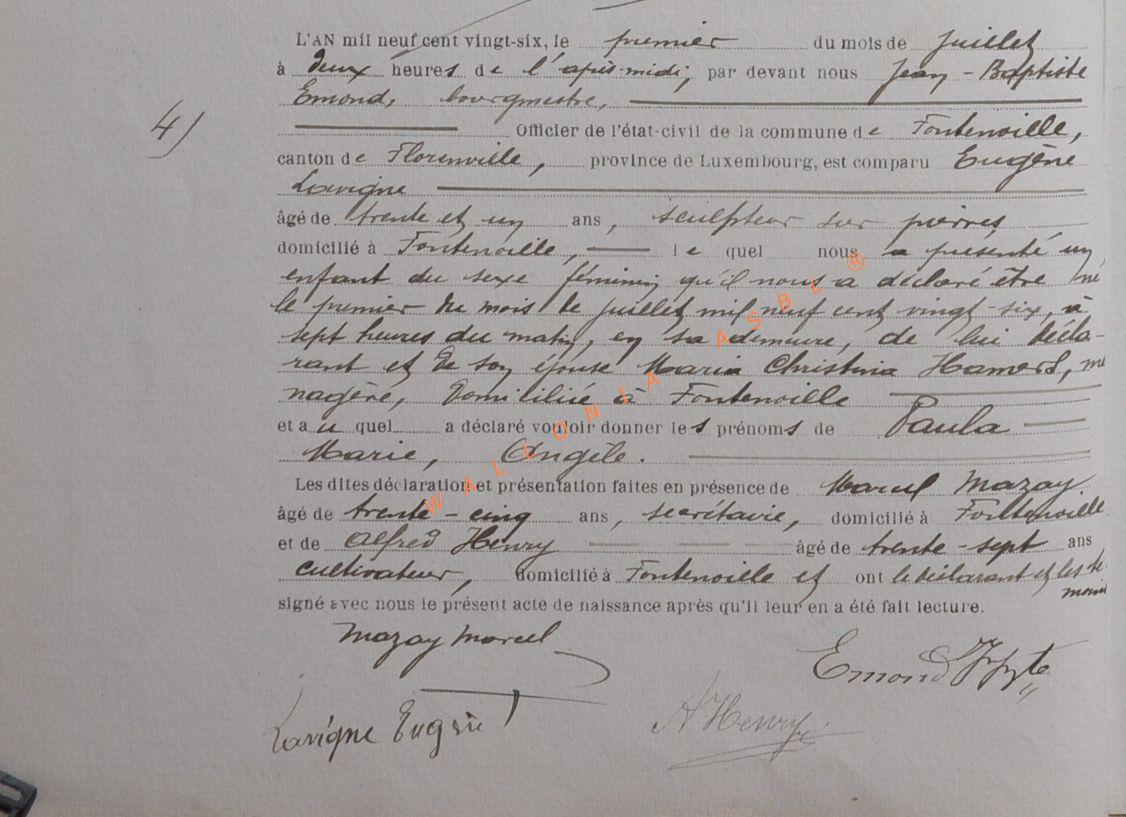 L'AN mil neuf cent vingt-six, le premier du mois de juillet
à deux heures de l'après-midi, par devant nous Jean-Baptiste
Emond, bourgmestre,
4) Officier de l'état-civil de la commune de Fontenoille,
canton de Florenville, province de Luxembourg, est comparu Eugène
Lavigne
âgé de trente et un ans, sculpteur sur pierres
domicilié à Fontenoille, le quel nous a présenté un
enfant du sexe féminin qu'il nous a déclaré être né
le premier du mois de juillet mil neuf cent vingt-six, à
sept heures du matin, en sa demeure, de lui décla-
rant et de son épouse Maria Christina Hamers, mé
nagère, domiciliée à Fontenoille
et a u quel a déclaré vouloir donner les prénoms de Paula
Marie, Angèle.
Les dites déclaration et présentation faites en présence de Marcel Mazay
âgé de trente-cinq ans, secrétaire, domicilié à Fontenoille
et de Alfred Henry âgé de trente-sept ans
cultivateur, domicilié à Fontenoille et ont le déclarant et les té
moins
signé avec nous le présent acte de naissance après qu'il leur en a été fait lecture.
Mazay Marcel
Emond
Lavigne Eugène
A Henry
WALLONIA ASBL ®